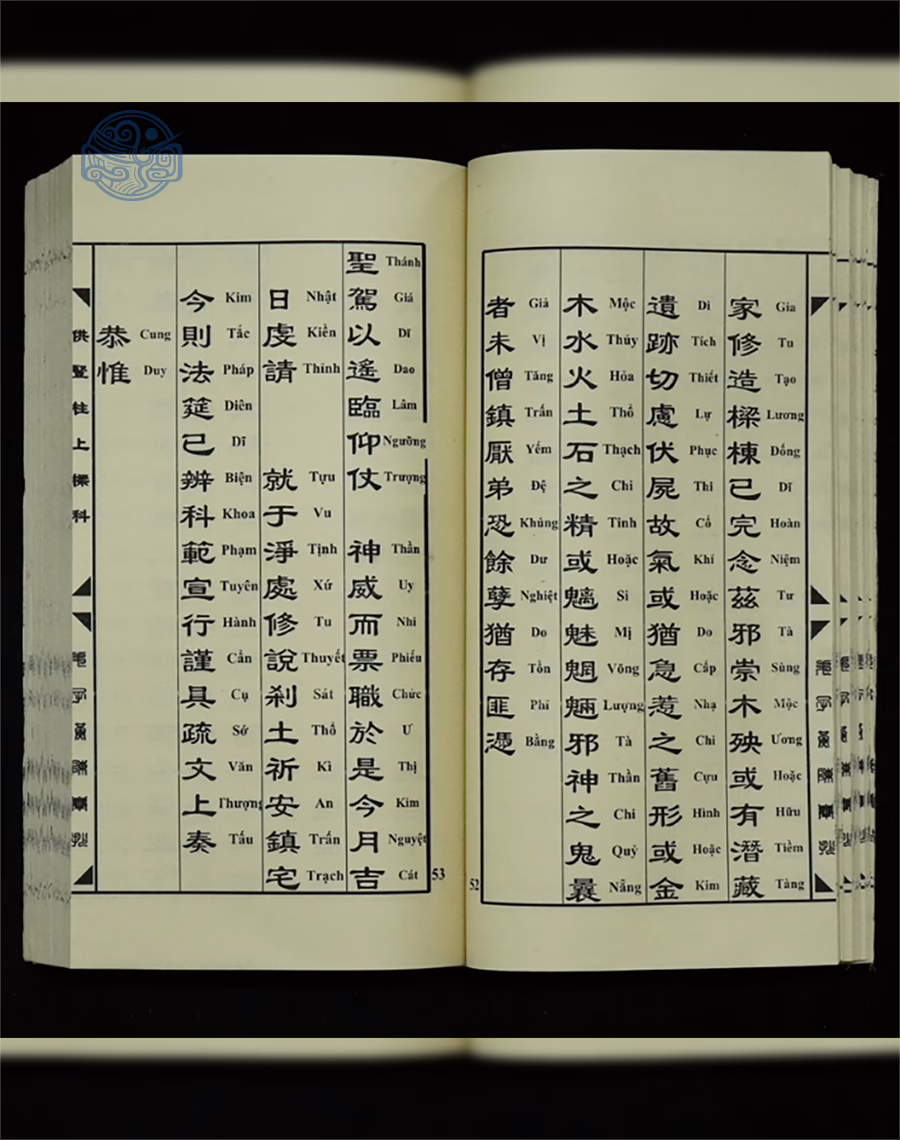 家修造樑棟已完念茲邪崇木殃或有潛藏
Gia Tu Tạo Lương Đống Dĩ Hoàn Niệm Tư Tà Sùng Mộc Ương Hoặc Hữu Tiềm Tàng
遺跡切慮伏屍故氣或猶急惹之舊形或金
Di Tích Thiết Lự Phục Thi Cố Khí Hoặc Do Cấp Nhạ Chi Cựu Hình Hoặc Kim
木水火土石之精或魑魅魍魎邪神之鬼曩
Mộc Thủy Hỏa Thổ Thạch Chi Tinh Hoặc Si Mị Võng Lượng Tà Thần Chi Quỷ Nẵng
者未僧鎮厭弟恐餘孽猶存匪憑
Giả Vị Tăng Trấn Yếm Đệ Khủng Dư Nghiệt Do Tồn Phỉ Bằng
52
聖駕以遙臨仰仗神威而票職於是今月吉
Thánh Giá Dĩ Dao Lâm Ngưỡng Trượng Thần Uy Nhi Phiếu Chức Ư Thị Kim Nguyệt Cát
日虔請就于淨處修說剎土祈安鎮宅
Nhật Kiền Thỉnh Tựu Vu Tịnh Xứ Tu Thuyết Sát Thổ Kì An Trấn Trạch
今則法筵已辨科範宣行謹具疏文上奏
Kim Tắc Pháp Diên Dĩ Biện Khoa Phạm Tuyên Hành Cẩn Cụ Sớ Văn Thượng Tấu
恭惟
Cung Duy
供豎柱上樑科
53